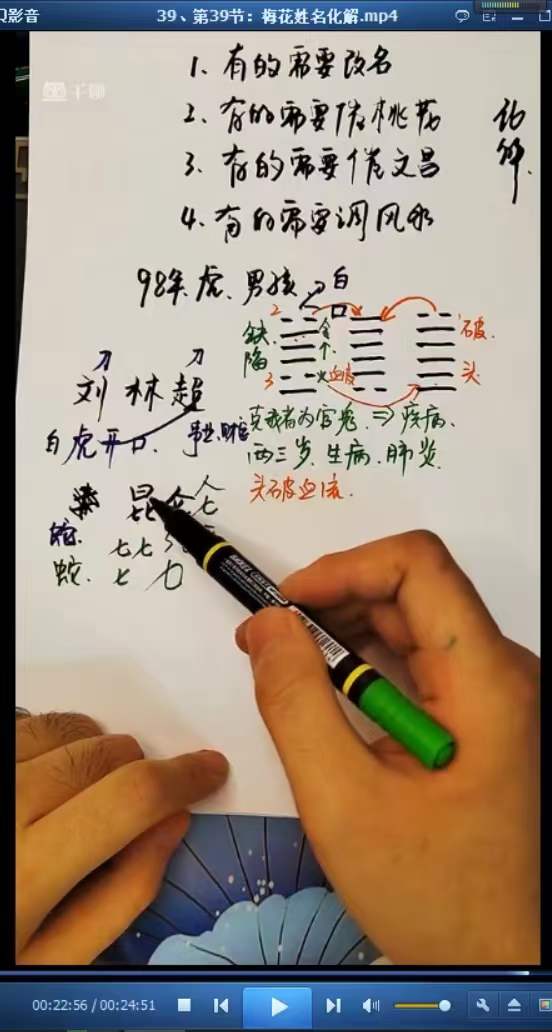 Q影音
39、第39节：梅花姓名化解.mp4
千聊
1、有的需要改名
2、有的需要催桃花
3、有的需要催文昌
4、有的需要调风水
化解.
98年.虎.男孩
白
口
2
缺陷
金
个
3
火
血皮
破.
头
刀 刀
刘林超
白虎开口.
克我者为官鬼.⇒疾病.
两三岁.生病.肺炎.
头破血流.
昆
人
七
蛇.
七七
蛇.
七
力
00:22:56 / 00:24:51